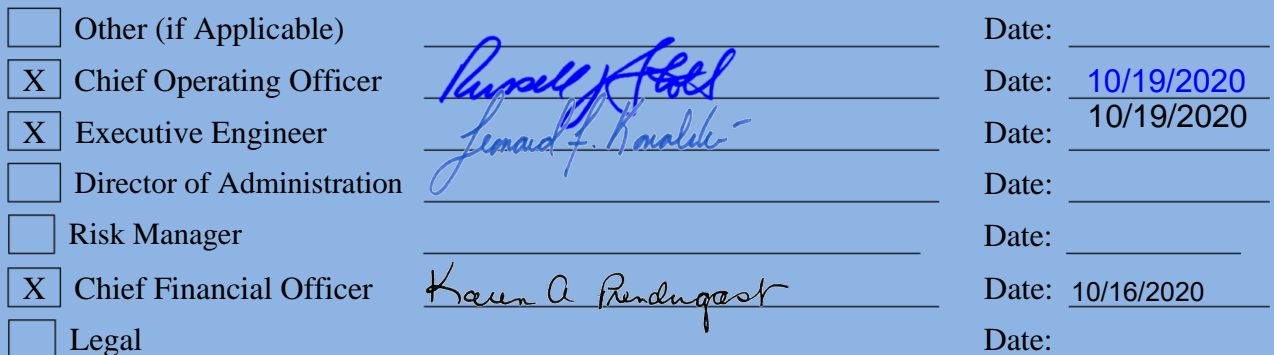 Other (if Applicable) Date:
X Chief Operating Officer Russell Date: 10/19/2020
X Executive Engineer Leonard F. Kowalski Date: 10/19/2020
Director of Administration Date:
Risk Manager Date:
X Chief Financial Officer Karen A Prendergast Date: 10/16/2020
Legal Date: